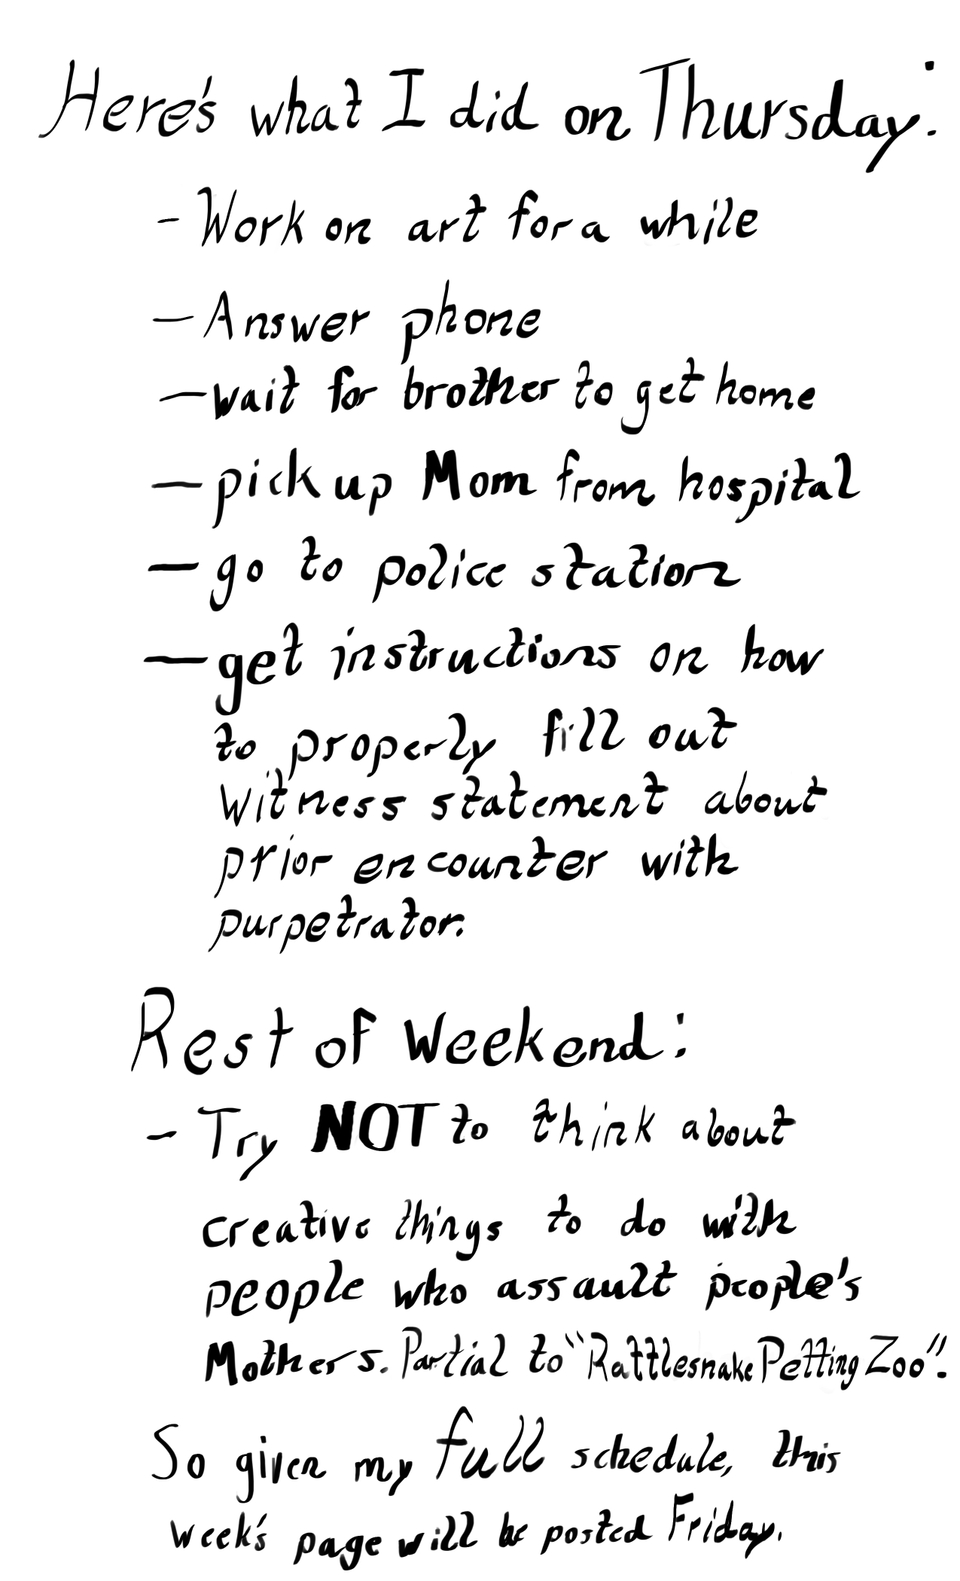 Here's what I did on Thursday:
- Work on art for a while
- Answer phone
- wait for brother to get home
- pick up Mom from hospital
- go to police station
- get instructions on how
to properly fill out
witness statement about
prior encounter with
purpetrator.
Rest of Weekend:
- Try NOT to think about
creative things to do with
people who assault people's
Mothers. Partial to "Rattlesnake Petting Zoo".
So given my full schedule, this
week's page will be posted Friday.